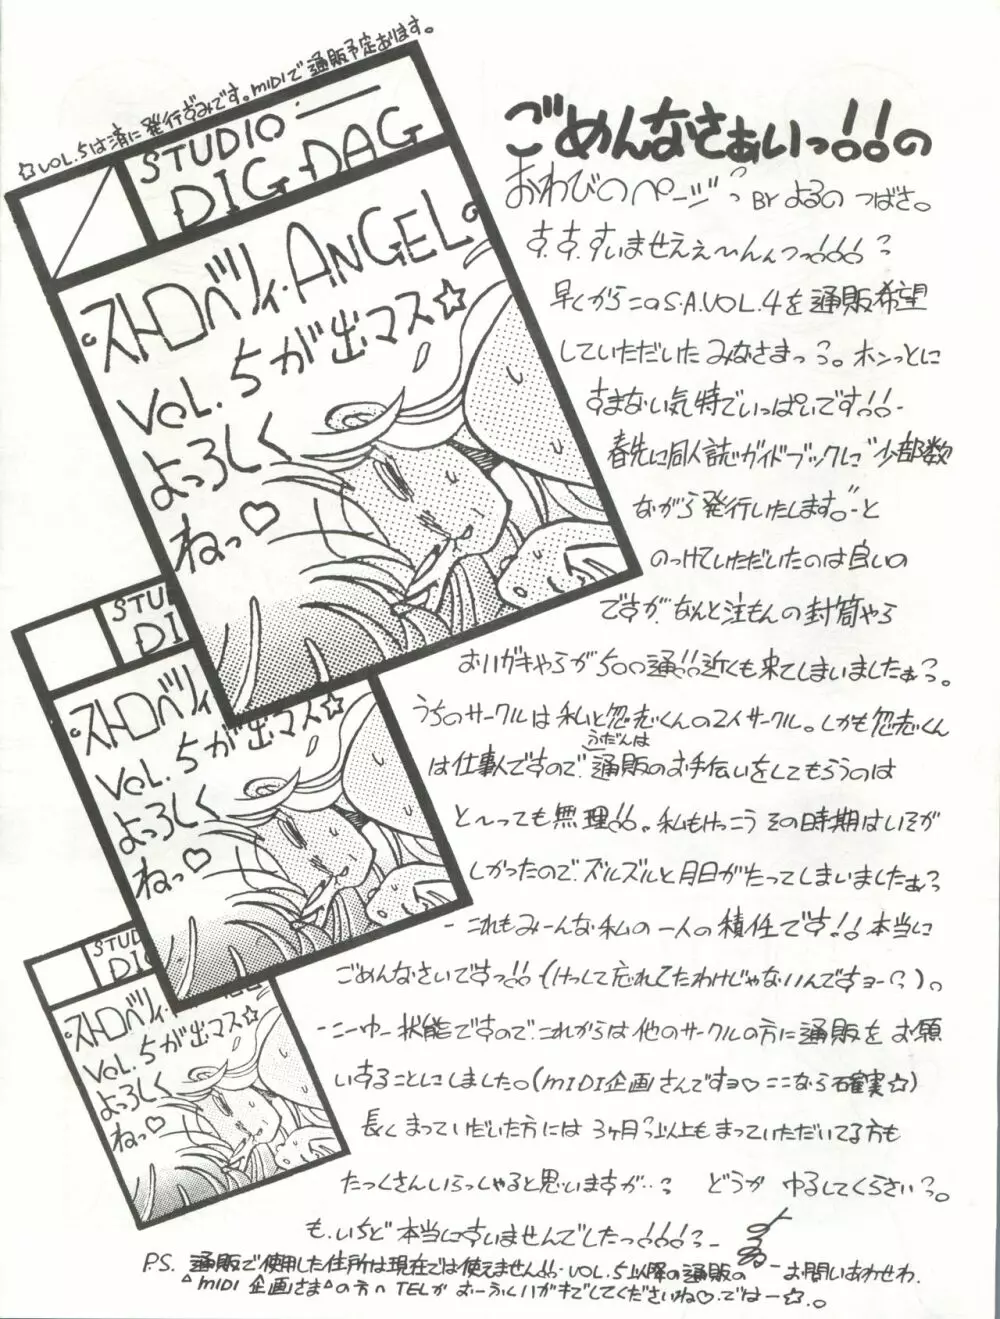 ☆VOL.5は済に発行ずみです。MIDIで通販予定あります。
STUDIO
DIG DAG
ストロベリィ・ANGEL
VOL.5が出マス☆
よっろしく
ねっ♡
STU
DI
ストロベリィ
VOL.5が出マス☆
よっろしく
ねっ♡
STUD
DI
ストロベリィ
VOL.5が出マス☆
よっろしく
ねっ♡
ごめんなさぁいっ!!の
おわびのページ BY よるの つばさ。
す、す、すいませえぇ〜んんっっ!!!
早くからこのS.A.VOL.4を通販希望
していただいた みなさまっ。ホンっとに
すまない気持でいっぱいです!!-
春先に同人誌ガイドブックに"少部数
ながら発行いたします。"と
のっけていただいたのは良いの
ですが、なんと注もんの封筒やら
おハガキやらが500通!!近くも来てしまいましたぁ。
うちのサークルは私と くんの2人サークル。しかも くん
は仕事人ですので、ふだんは通販のお手伝いをしてもらうのは
と〜っても無理!!。私もけっこう その時期はいそが
しかったので、ズルズルと月日がたってしまいましたぁ
-これもみーんな私の一人の積任です!!本当に
ごめんなさいですっ!!(けっして忘れてたわけじゃないんですョー)。
-こーゆー状態ですので、これからは他のサークルの方に通販をお願
いすることにしました。(MIDI企画さんですョ♡ここなら確実☆)
長くまっていだいた方には3ヶ月以上もまっていただいてる方も
たっくさんいらっしゃると思いますが… どうか ゆるしてくらさい。
も、いちど本当にすいませんでしたっ!!!-
P.S. 通販で使用した住所は現在では使えません!!・VOL.5以降の通販の-お問いあわせわ、
"MIDI企画さま"の方へTELか おーふくハガキでしてくださいね♡ではー☆。